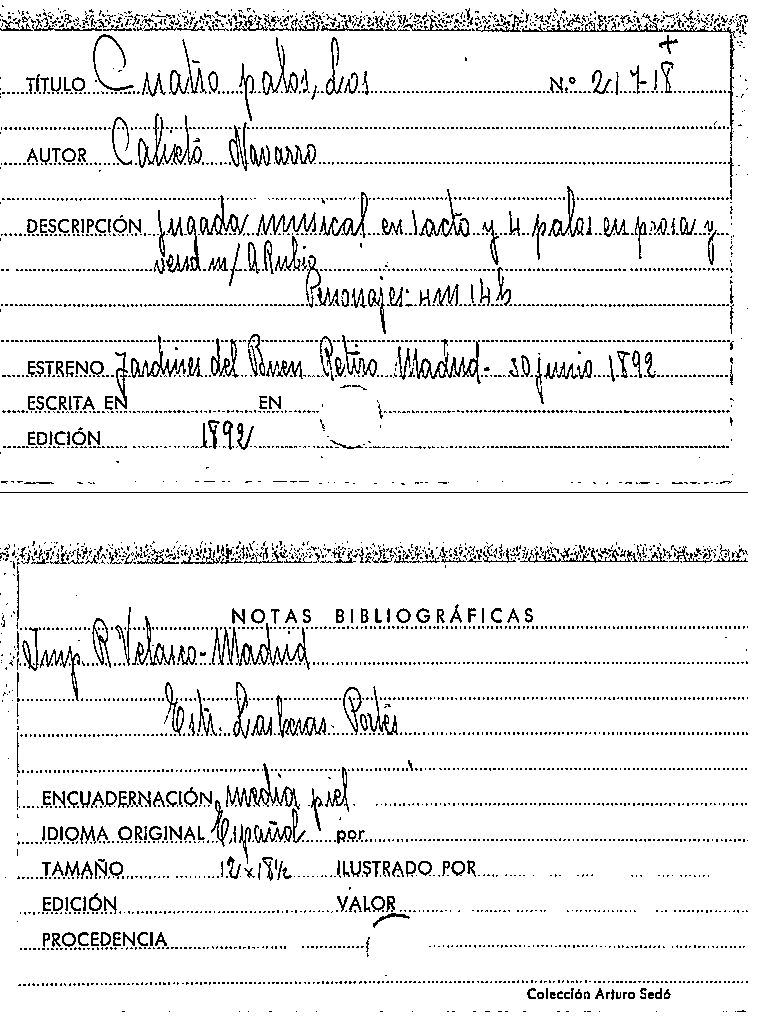 TÍTULO Cuatro palos, Los N.º 217-18
AUTOR Calixto Navarro
DESCRIPCIÓN Jugada musical en 1 acto y 4 palos en prosa y
m/ A Rubio
Personajes: 4m 14h
ESTRENO Jardines del Buen Retiro Madrid - 30 junio 1892
ESCRITA EN EN
EDICIÓN 1892
NOTAS BIBLIOGRÁFICAS
Imp R Velasco - Madrid
Estr.
ENCUADERNACIÓN media piel
IDIOMA ORIGINAL Español por
TAMAÑO 12 x 18½ ILUSTRADO POR
EDICIÓN VALOR
PROCEDENCIA
Colección Arturo Sedó